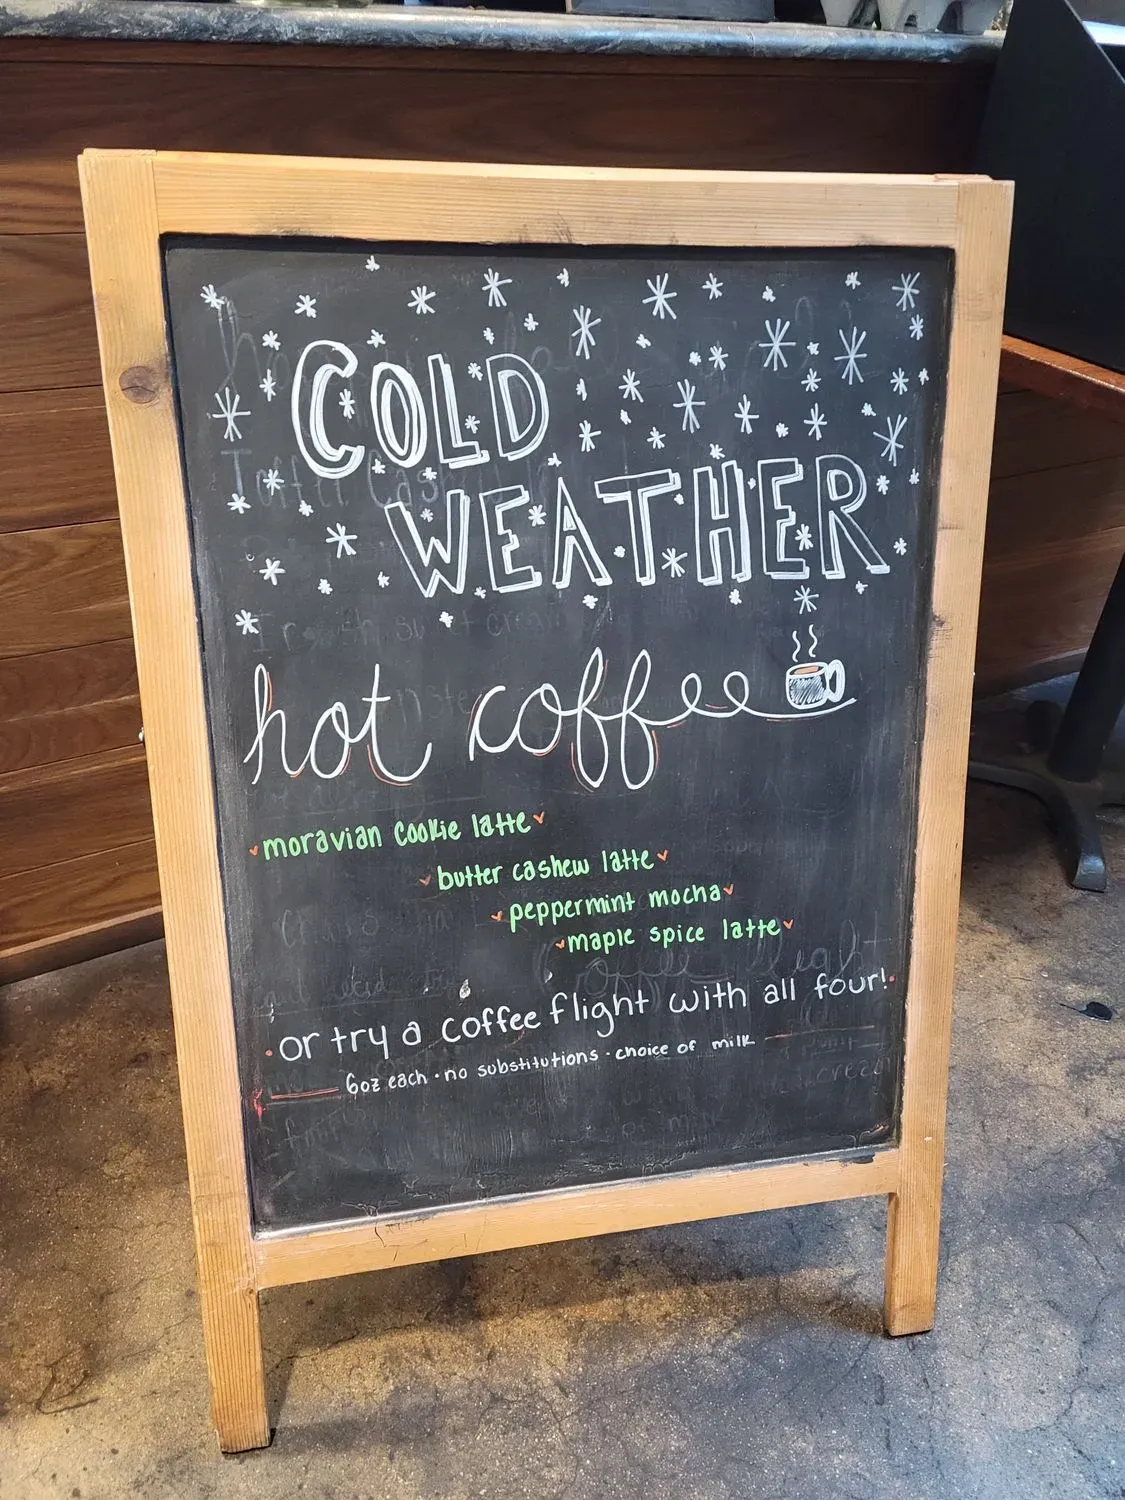 COLD
WEATHER
hot coffee
moravian cookie latte
butter cashew latte
peppermint mocha
maple spice latte
or try a coffee flight with all four!
6oz each · no substitutions · choice of milk